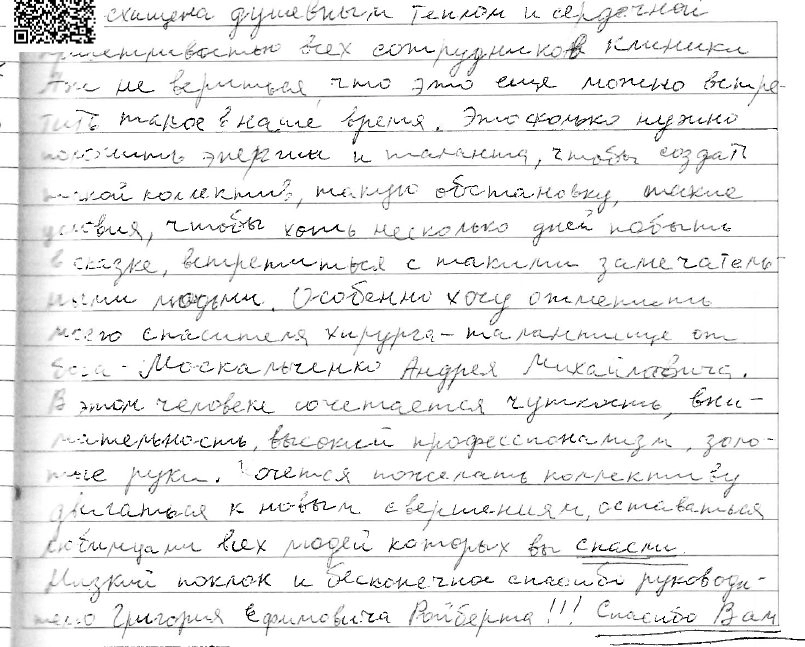 схищена душевным теплом и сердечной
приветливостью всех сотрудников клиники
Аж не вериться, что это еще можно встре-
тить такое в наше время. Это сколько нужно
положить энергии и таланта, чтобы создать
такой коллектив, такую обстановку, такие
условия, чтобы хоть несколько дней побыть
в сказке, встретиться с такими замечатель-
ными людьми. Особенно хочу отметить
моего спасителя хирурга - талантище от
Бога - Москальченко Андрея Михайловича.
В этом человеке сочетается чуткость, вни-
мательность, высокий профессионализм, золо-
тые руки. Хочется пожелать коллективу
двигаться к новым свершениям, оставаться
любимцами всех людей которых вы спасли.
Низкий поклон и бесконечное спасибо руководи-
Григория Ефимовича Ройберта!!! Спасибо Вам